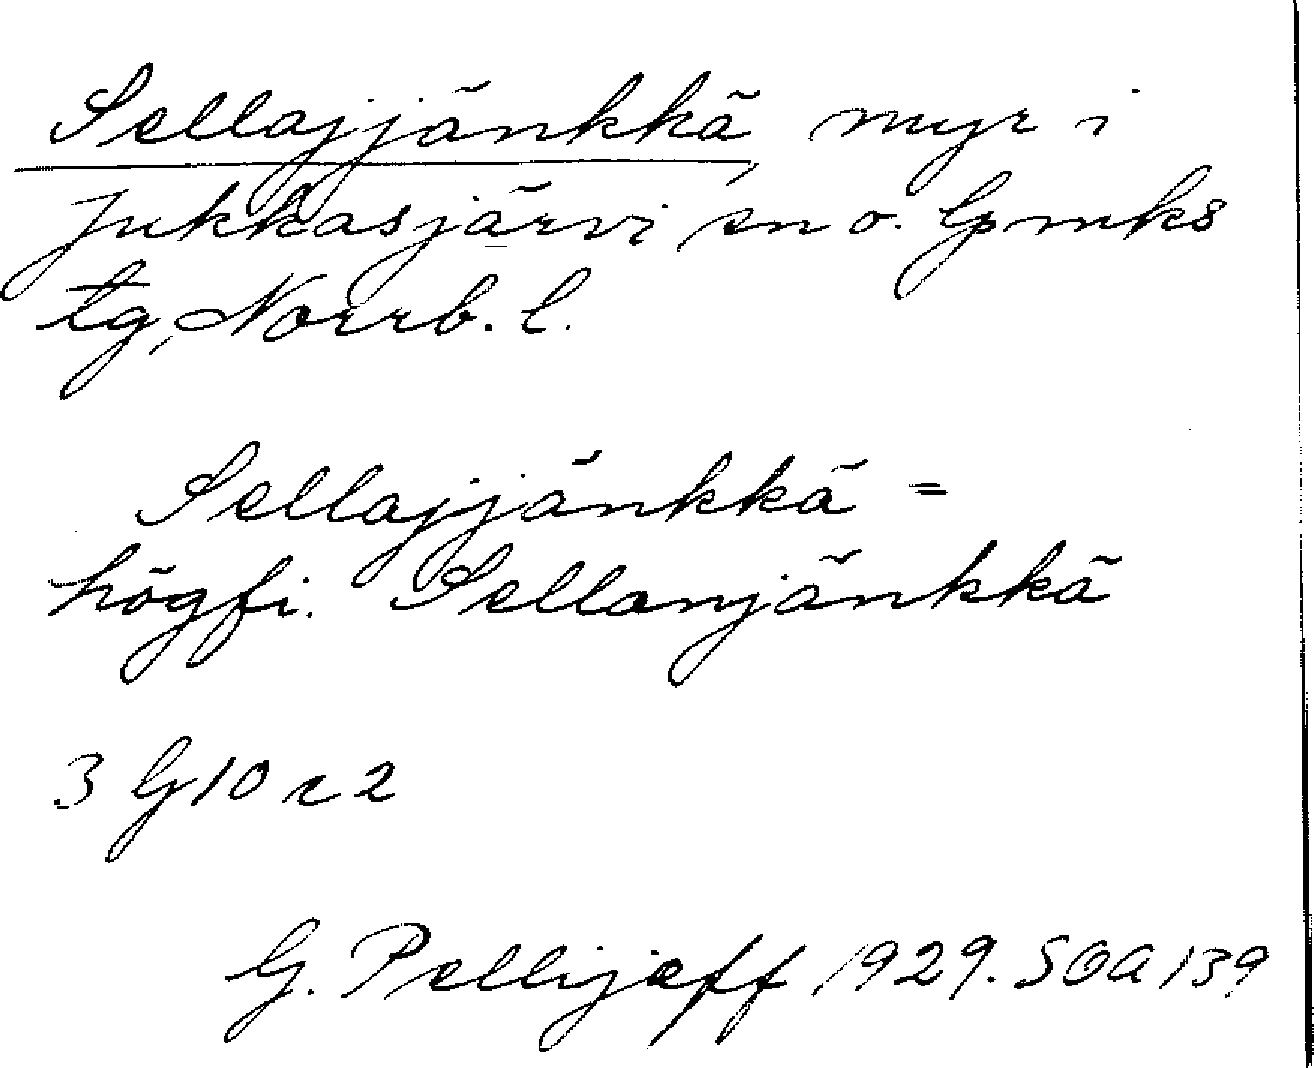 Sellajjänkkä, myr i
Jukkasjärvi sn o. lpmks
tg, Norrb. l.
Sellajjänkkä =
högfi. Sellanjänkkä
3 G 10 r 2
G. Pellijeff 1929. SOA 139